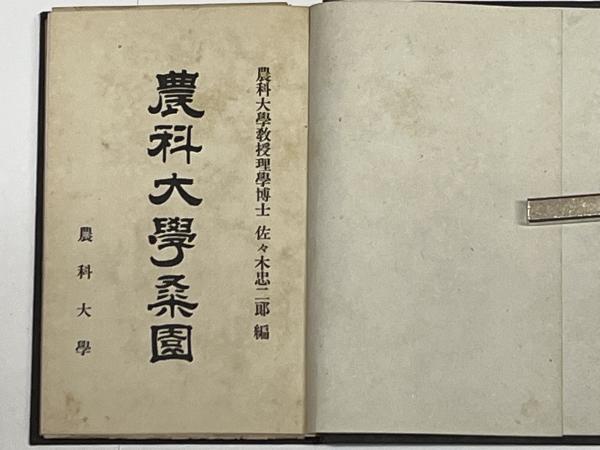 農科大學教授理學博士 佐々木忠二郎 編
農科大學桑園
農科大學